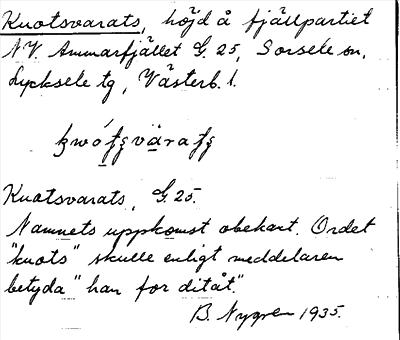 Knotsvarats, höjd å fjällpartiet
N.V. Ammarfjället G. 25, Sorsele sn,
Lycksele tg, Västerb. l.
Knotsvarats, G. 25.
Namnets uppkomst obekant. Ordet
"knots" skulle enligt meddelaren
betyda "han for ditåt".
B. Nygren 1935.